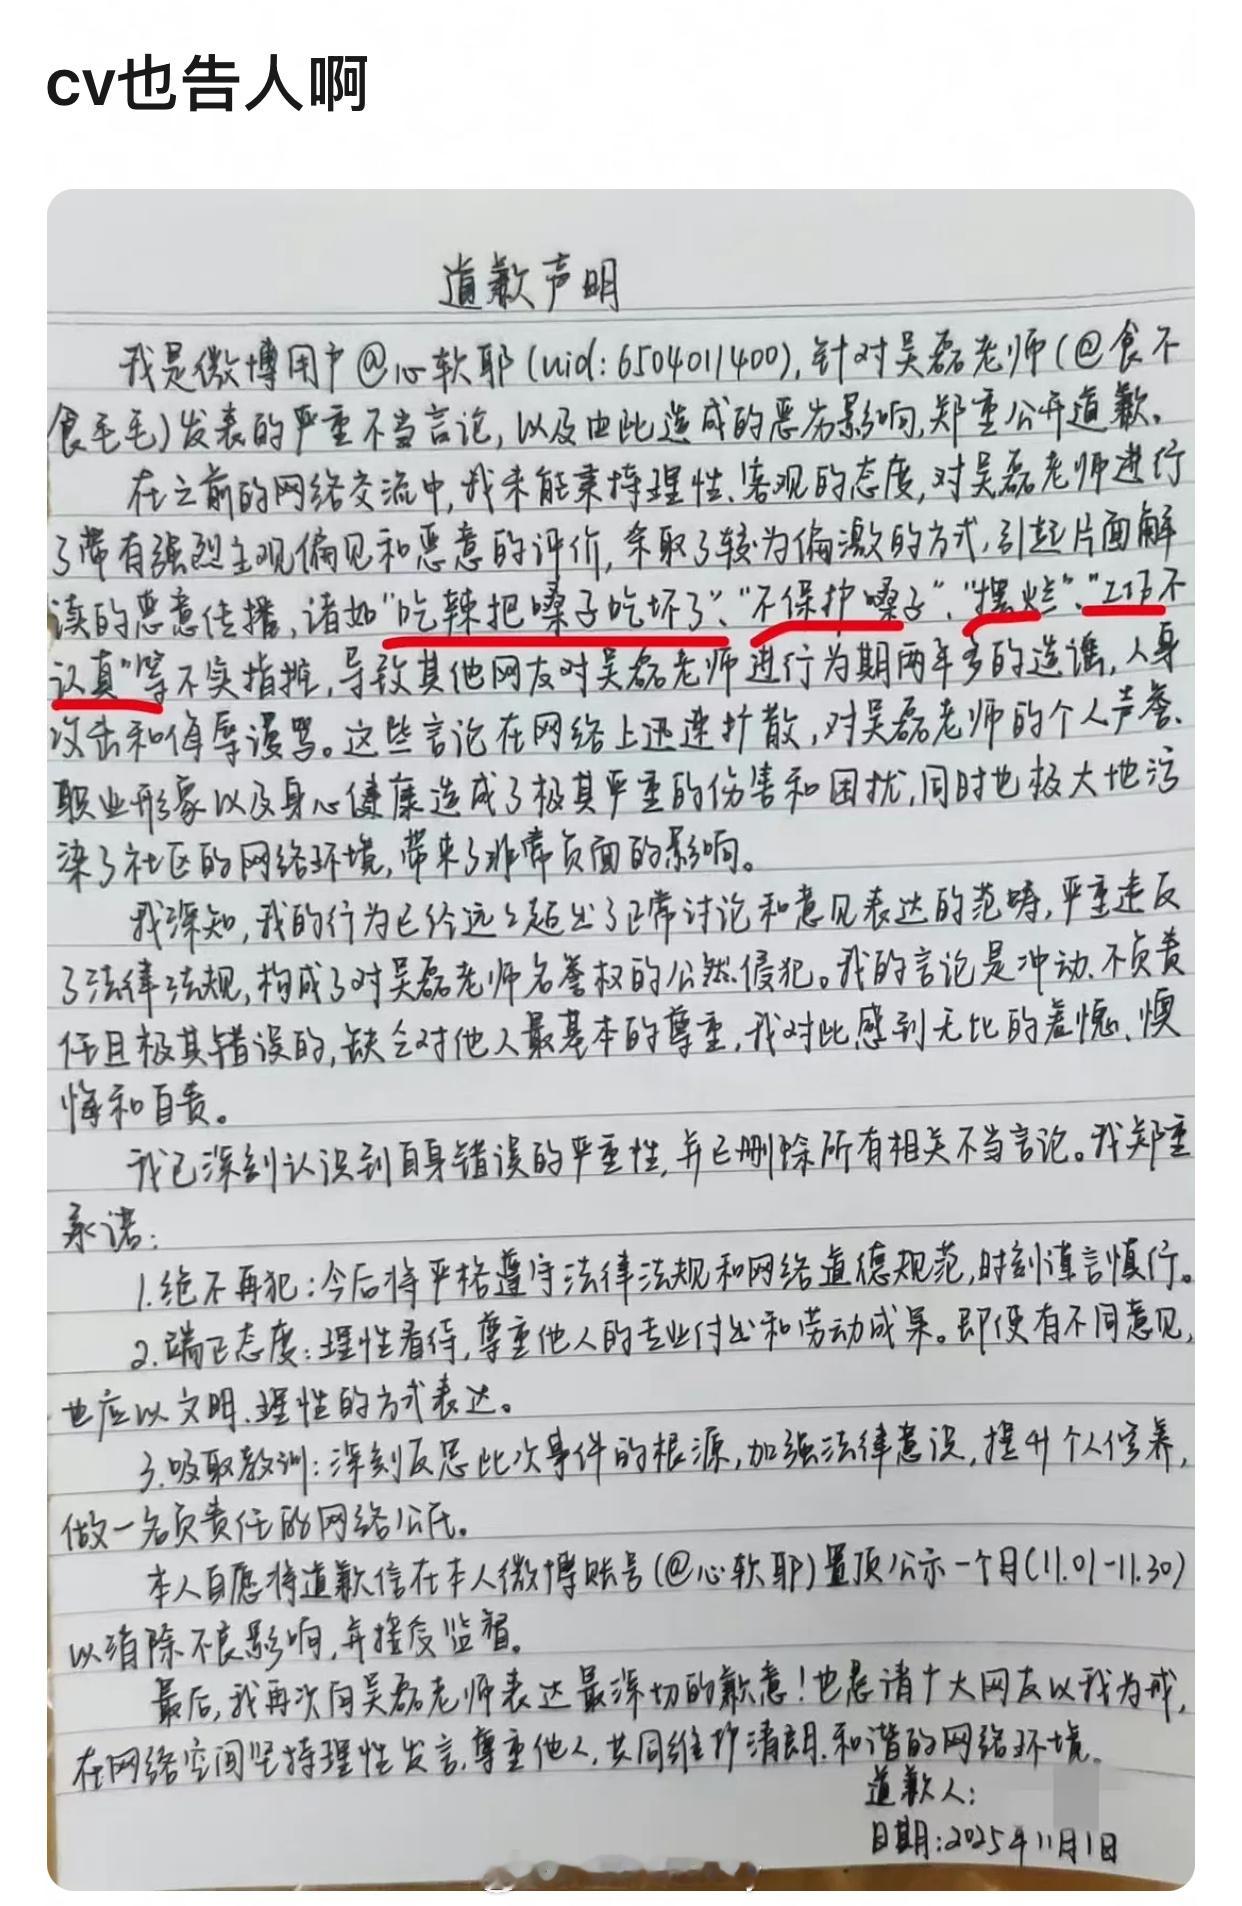 cv也告人啊
道歉声明
我是微博用户@心软耶(uid:6504011400),针对吴磊老师(@食不
食毛毛)发表的严重不当言论,以及由此造成的恶劣影响,郑重公开道歉。
在之前的网络交流中,我未能秉持理性、客观的态度,对吴磊老师进行
了带有强烈主观偏见和恶意的评价,采取了较为偏激的方式,引起片面解
读的恶意传播,诸如“吃辣把嗓子吃坏了”、“不保护嗓子”、“摆烂”、“工作不
认真”等不实指摘,导致其他网友对吴磊老师进行为期两年多的造谣,人身
攻击和侮辱谩骂。这些言论在网络上迅速扩散,对吴磊老师的个人声誉、
职业形象以及身心健康造成了极其严重的伤害和困扰,同时也极大地污
染了社区的网络环境,带来了非常负面的影响。
我深知,我的行为已经远远超出了正常讨论和意见表达的范畴,严重违反
了法律法规,构成了对吴磊老师名誉权的公然侵犯。我的言论是冲动、不负责
任且极其错误的,缺乏对他人最基本的尊重,我对此感到无比的羞愧、懊
悔和自责。
我已深刻认识到自身错误的严重性,并已删除所有相关不当言论。我郑重
承诺:
1.绝不再犯:今后将严格遵守法律法规和网络道德规范,时刻谨言慎行。
2.端正态度:理性看待,尊重他人的专业付出和劳动成果。即便有不同意见,
也应以文明、理性的方式表达。
3.吸取教训:深刻反思此次事件的根源,加强法律意识,提升个人修养,
做一名负责任的网络公民。
本人自愿将道歉信在本人微博账号(@心软耶)置顶公示一个月(11.01-11.30)
以消除不良影响,并接受监督。
最后,我再次向吴磊老师表达最深切的歉意!也恳请广大网友以我为戒,
在网络空间坚持理性发言,尊重他人,共同维护清朗、和谐的网络环境。
道歉人:
日期:2025年11月1日